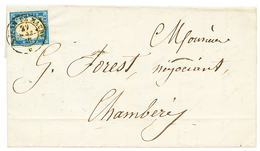 Monsieur
G. Forest, negociant,
Chambéry